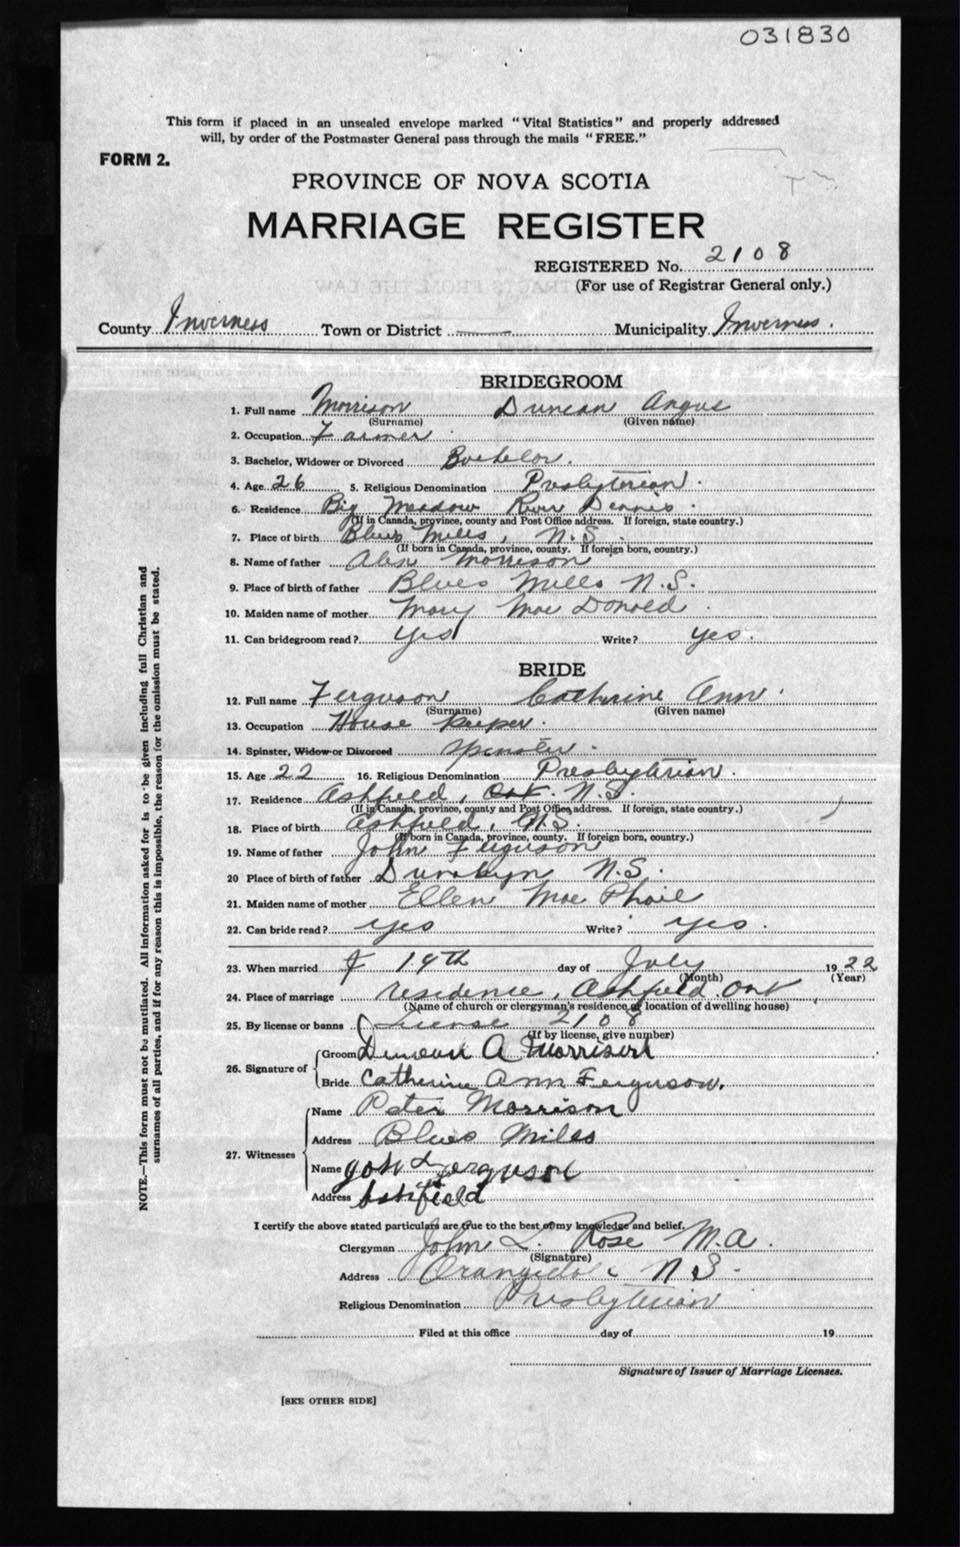 031830
This form if placed in an unsealed envelope marked "Vital Statistics" and properly addressed
will, by order of the Postmaster General pass through the mails "FREE."
FORM 2.
PROVINCE OF NOVA SCOTIA
MARRIAGE REGISTER
REGISTERED No. 2108
(For use of Registrar General only.)
County Inverness Town or District Municipality Inverness.
BRIDEGROOM
1. Full name Morrison Duncan Angus
(Surname) (Given name)
2. Occupation Farmer
3. Bachelor, Widower or Divorced Bachelor.
4. Age 26 5. Religious Denomination Presbyterian.
6. Residence Big Meadow River Dennis.
(If in Canada, province, county and Post Office address. If foreign, state country.)
7. Place of birth Blues Mills, N.S.
(If born in Canada, province, county. If foreign born, country.)
8. Name of father Alex Morrison
9. Place of birth of father Blues Mills N.S.
10. Maiden name of mother Mary Mac Donald
11. Can bridegroom read? yes Write? yes.
BRIDE
12. Full name Ferguson Cathrine Ann.
(Surname) (Given name)
13. Occupation House keeper.
14. Spinster, Widow or Divorced Spinster.
15. Age 22 16. Religious Denomination Presbyterian.
17. Residence Ashfield, Ont. N.S.
(If in Canada, province, county and Post Office address. If foreign, state country.)
18. Place of birth Ashfield, N.S.
(If born in Canada, province, county. If foreign born, country.)
19. Name of father John Ferguson
20 Place of birth of father N.S.
21. Maiden name of mother Ellen Mac Phail
22. Can bride read? yes Write? yes.
23. When married 19th day of July 1922
(Month) (Year)
24. Place of marriage residence, Ashfield. Ont
(Name of church or clergyman's residence or location of dwelling house)
25. By license or banns License 2108
(If by license, give number)
26. Signature of
Groom Duncan A Morrison
Bride Catherine Ann Ferguson.
27. Witnesses
Name Peter Morrison
Address Blues Miles
Name Ferguson
Address Ashfield
I certify the above stated particulars are true to the best of my knowledge and belief.
Clergyman John L. Rose M.A.
(Signature)
Address Orangedale N S.
Religious Denomination Presbyterian
Filed at this office day of 19
Signature of Issuer of Marriage Licenses.
[SEE OTHER SIDE]
NOTE.—This form must not be mutilated. All information asked for is to be given including full Christian and
surnames of all parties, and if for any reason this is impossible, the reason for the omission must be stated.